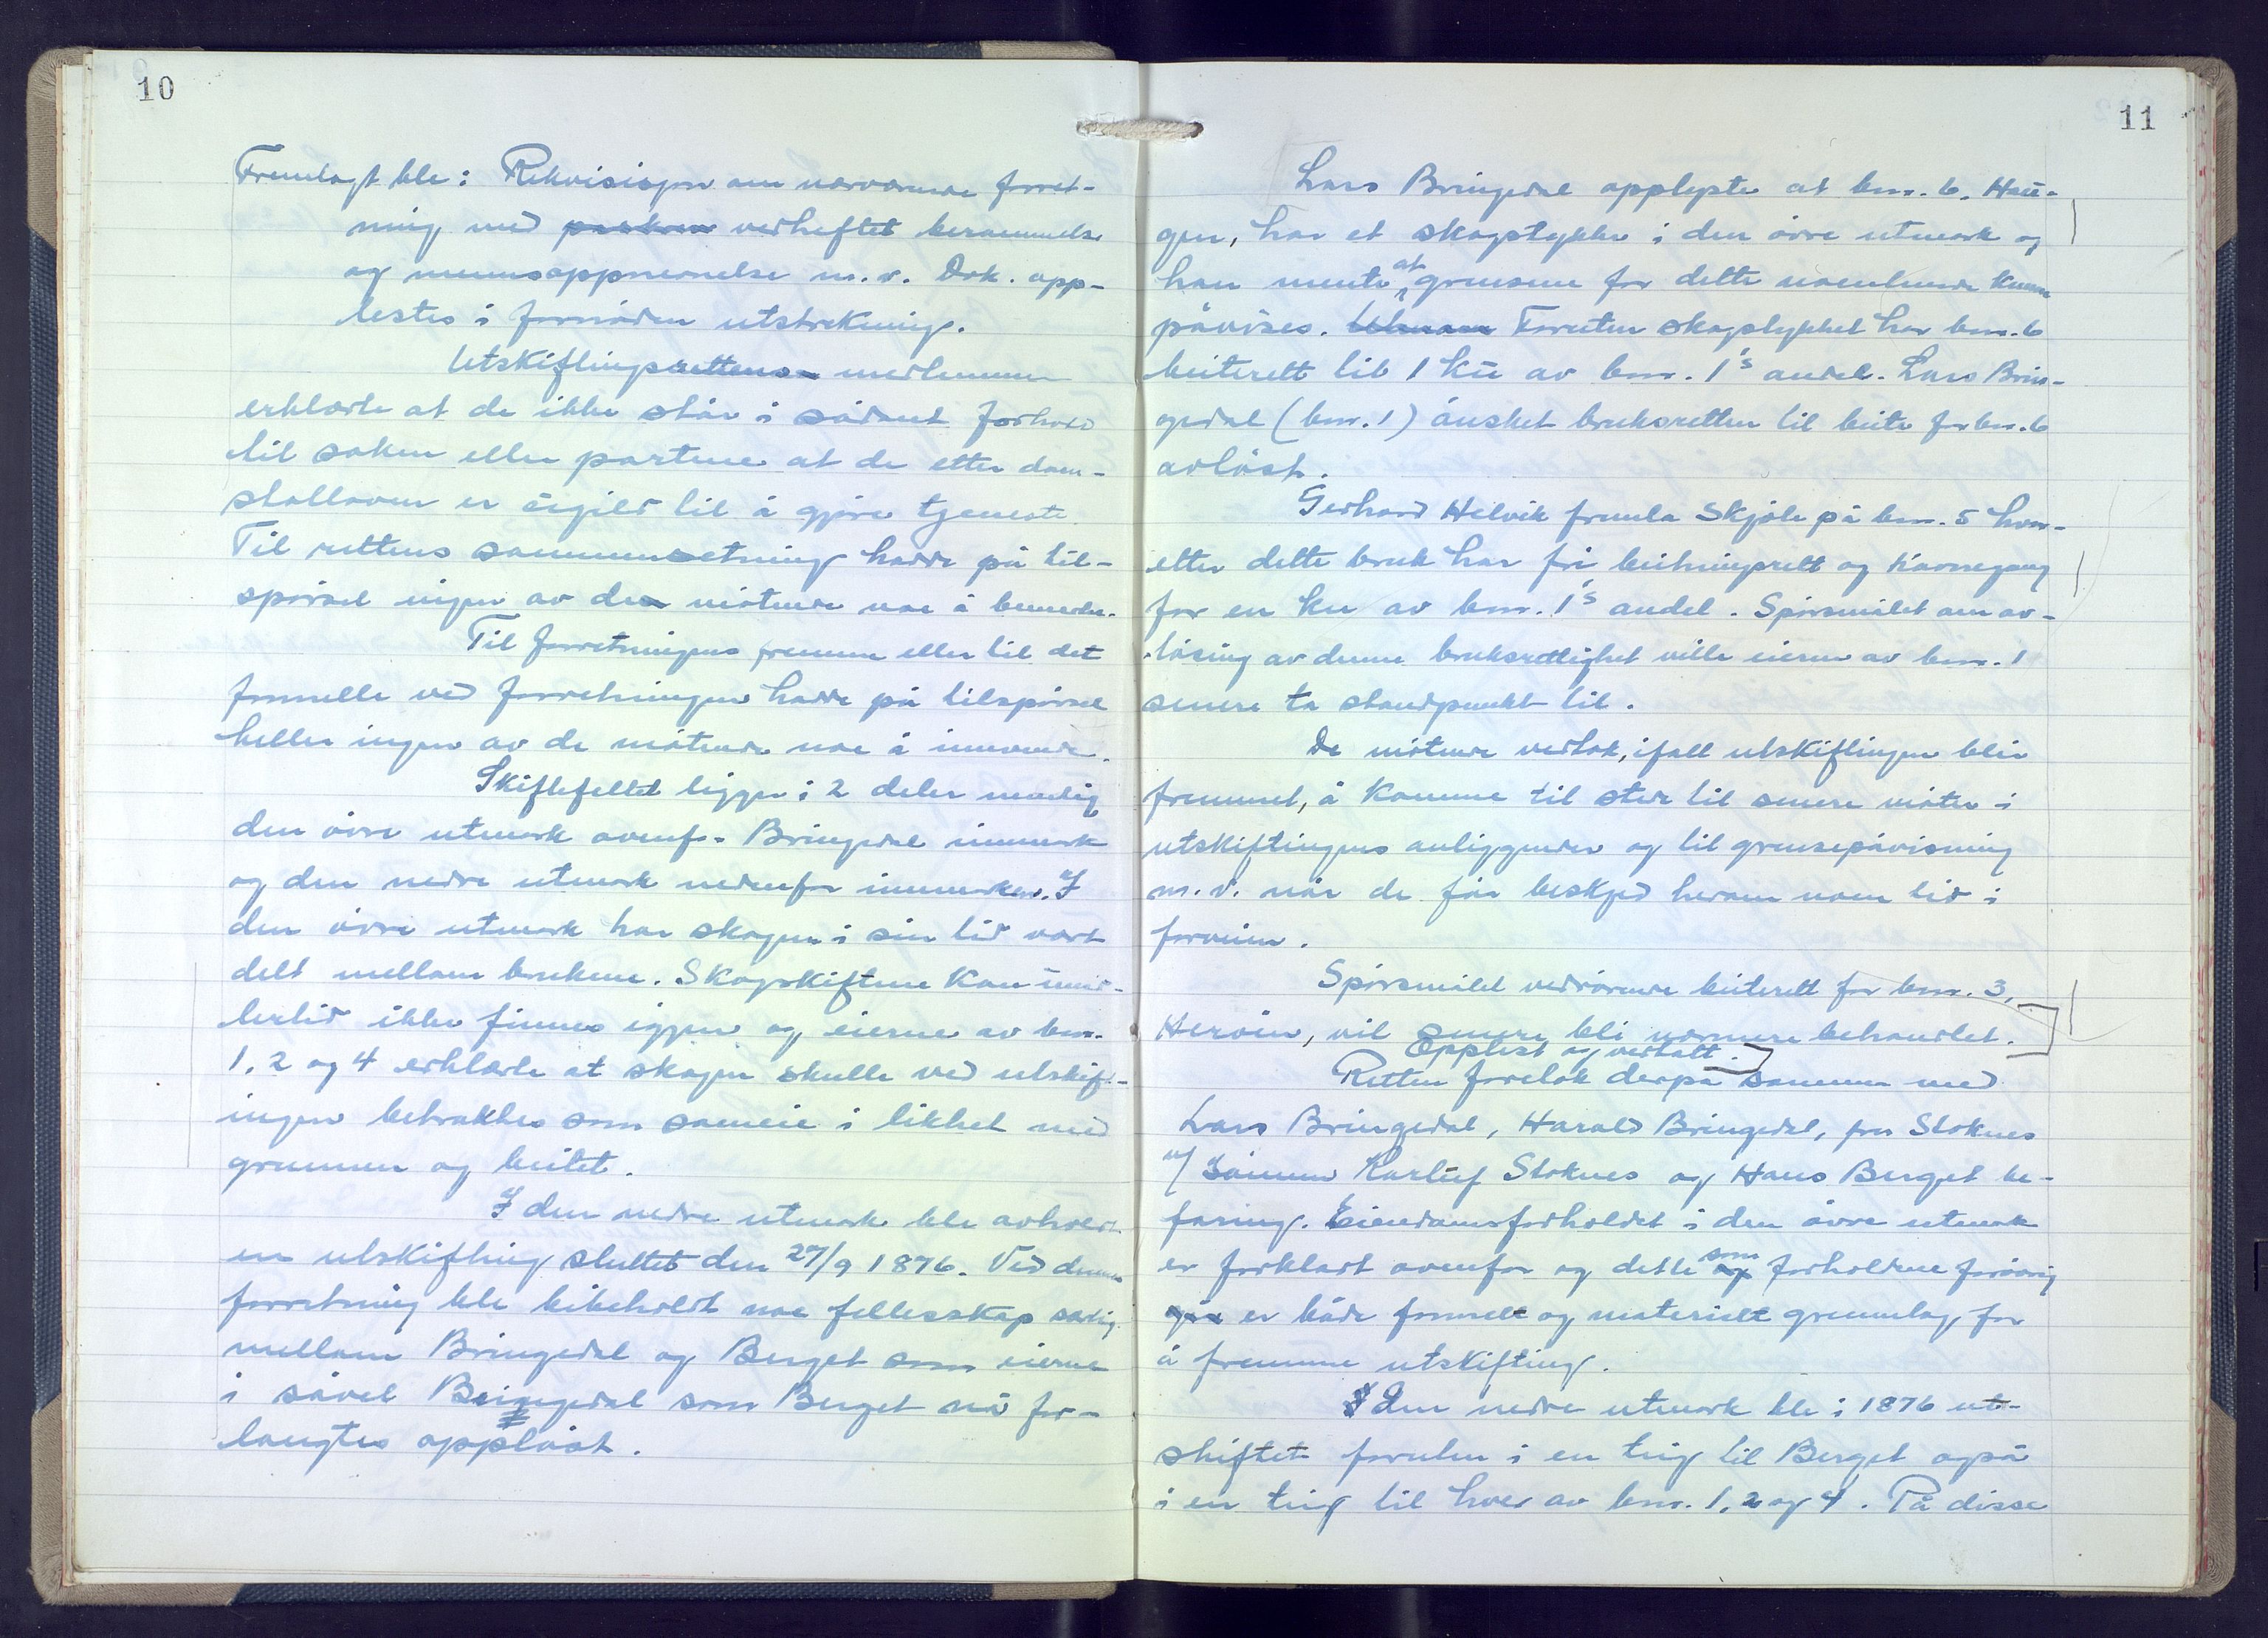 10
Fremlagt ble: Rekvisisjon om nærværende forret-
ning med vedheftet berammelse
og mennsoppnevnelse m.v. Dok. opp-
lestes i fornöden utstrekning.
Utskiftingsrettens medlemmer
erklærte at de ikke står i sådant forhold
til saken eller partene at de etter dom-
stolloven er ugild til å gjöre tjeneste.
Til rettens sammensetning hadde på til-
spörsel ingen av de mötende noe å bemerke.
Til forretningens fremme eller til det
formelle ved forretningen hadde på tilspörsel
heller ingen av de mötende noe å innvende.
Skiftefeltet ligger i 2 deler nemlig
den övre utmark ovenfor Bringedal innmark
og den nedre utmark nedenfor innmarken. I
den övre utmark har skogen i sin tid vært
delt mellom brukene. Skogskiftene kan imid-
lertid ikke finnes igjen og eierne av bnr.
1, 2 og 4 erklærte at skogen skulle ved utskift-
ingen betraktes som sameie i likhet med
grunnen og beitet.
I den nedre utmark ble avholdt
en utskifting sluttet den 27/9 1876. Ved denne
forretning ble bibeholdt noe fellesskap særlig
mellom Bringedal og Berget som eierne
i såvel Bringedal som Berget nå for-
langtes opplöst.
11
Lars Bringedal opplyste at bnr. 6, Hau-
gen, har et skogstykke i den övre utmark og
han mente at grensene for dette noenlunde kunne
påvises. Foruten skogstykket har bnr. 6
beiterett til 1 ku av bnr. 1's andel. Lars Brin-
gedal (bnr. 1) önsket bruksretten til beite for bnr. 6
avlöst.
Gerhard Helvik fremla skjöte på bnr. 5 hvor-
etter dette bruk har fri beitningsrett og havnegang
for en ku av bnr. 1's andel. Spörsmålet om av-
lösing av denne bruksrettighet ville eieren av bnr. 1
senere ta standpunkt til.
De mötende vedtok, ifall utskiftingen blir
fremmet, å komme til stede til senere möter i
utskiftingens anliggender og til grensepåvisning
m.v. når de får beskjed herom noen tid i
forveien.
Spörsmålet vedrörende beiterett for bnr. 3,
, vil senere bli nærmere behandlet.
Opplest og vedtatt.
Retten foretok derpå sammen med
Lars Bringedal, Harald Bringedal, fru Stoknes
m/ sönnen Stoknes og Hans Berget be-
faring. Eiendomsforholdet i den övre utmark
er forklart ovenfor og dette som forholdene forövrig
er både formelt og materielt grunnlag for
å fremme utskifting.
I den nedre utmark ble i 1876 ut-
skiftet foruten i en teig til Berget også
i en teig til hver av bnr. 1, 2 og 4. På disse